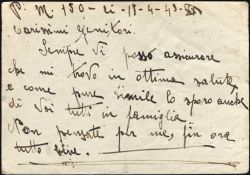 P. M. 180 - li - 18-4-43-
Carissimi Genitori.
Sempre Vi posso assicurare
che mi trovo in ottima salute,
e come pure simile lo spero anche
di Voi tutti in famiglia
Non pensate per me, fin ora
tutto bene.